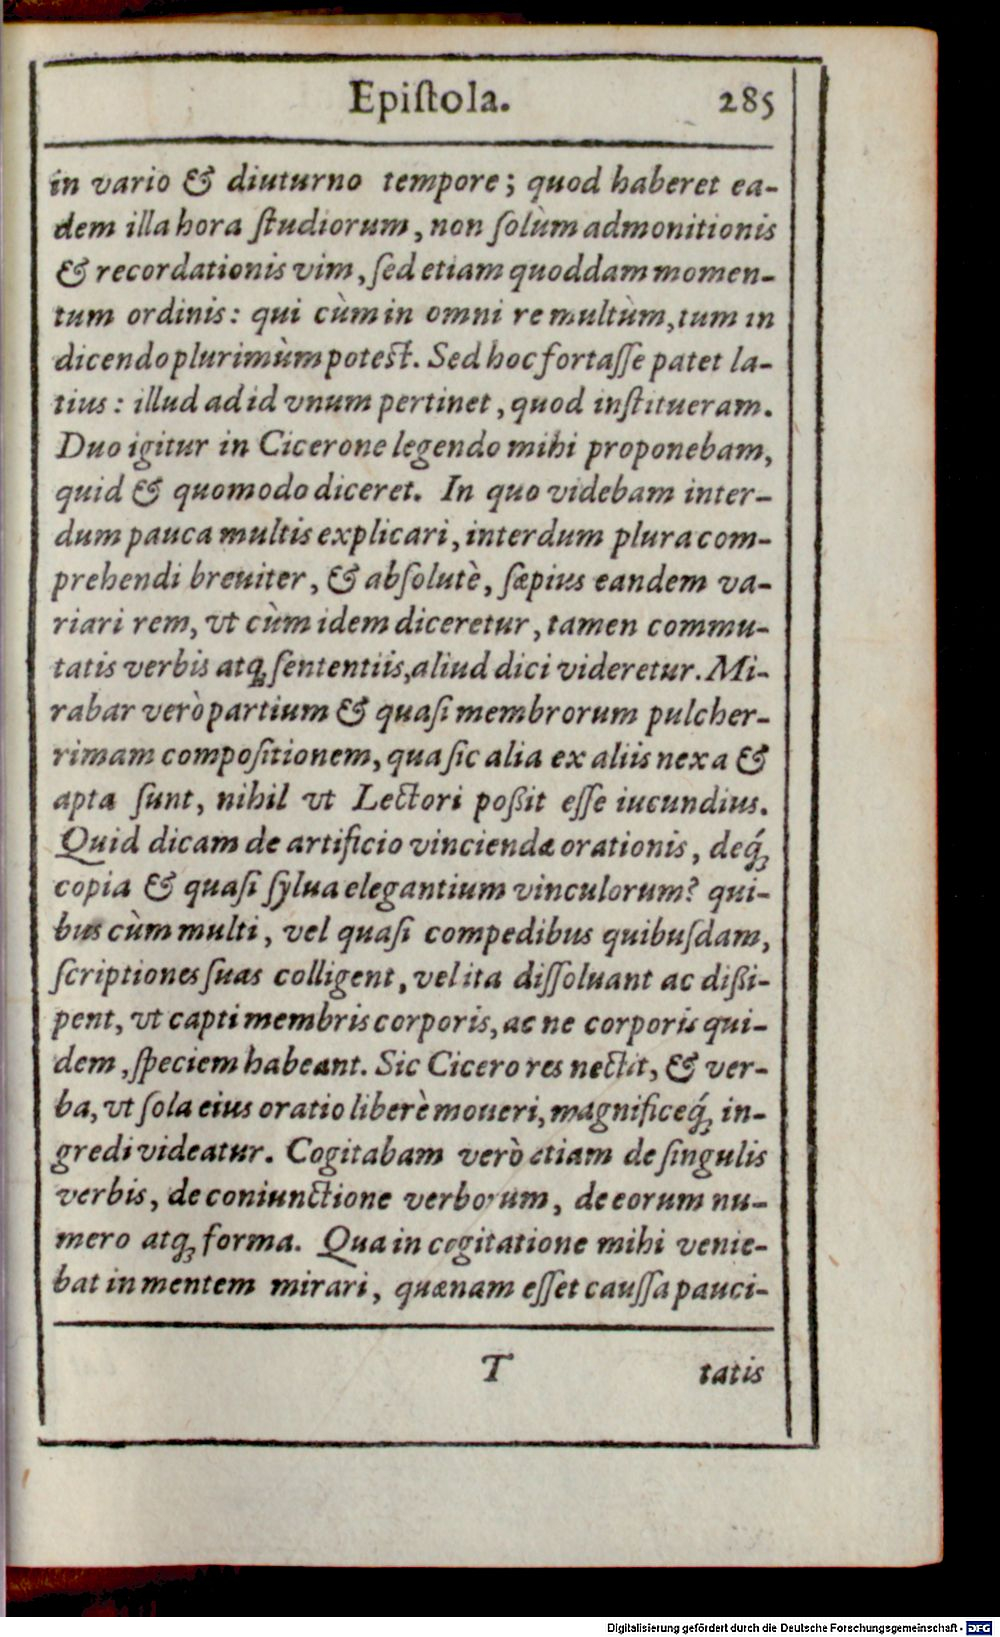 Epiſtola. 285
in vario & diuturno tempore; quod haberet ea-
dem illa hora ſtudiorum, non ſolùm admonitionis
& recordationis vim, ſed etiam quoddam momen-
tum ordinis: qui cùm in omni re multùm, tum in
dicendo plurimùm poteſt. Sed hoc fortaſſe patet la-
tius: illud ad id vnum pertinet, quod inſtitueram.
Duo igitur in Cicerone legendo mihi proponebam,
quid & quomodo diceret. In quo videbam inter-
dum pauca multis explicari, interdum plura com-
prehendi breuiter, & abſolutè, ſæpius eandem va-
riari rem, vt cùm idem diceretur, tamen commu-
tatis verbis atq; ſententiis, aliud dici videretur. Mi-
rabar verò partium & quaſi membrorum pulcher-
rimam compoſitionem, qua ſic alia ex aliis nexa &
apta ſunt, nihil vt Lectori poßit eſſe iucundius.
Quid dicam de artificio vinciendæ orationis, deq́;
copia & quaſi ſylua elegantium vinculorum? qui-
bus cùm multi, vel quaſi compedibus quibuſdam,
ſcriptiones ſuas colligent, vel ita diſſoluant ac dißi-
pent, vt capti membris corporis, ac ne corporis qui-
dem, ſpeciem habeant. Sic Cicero res nectit, & ver-
ba, vt ſola eius oratio liberè moueri, magnificeq́; in-
gredi videatur. Cogitabam verò etiam de ſingulis
verbis, de coniunctione verborum, de eorum nu-
mero atq; forma. Qua in cogitatione mihi venie-
bat in mentem mirari, quænam eſſet cauſſa pauci-
T tatis
Digitalisierung gefördert durch die Deutsche Forschungsgemeinschaft - DFG